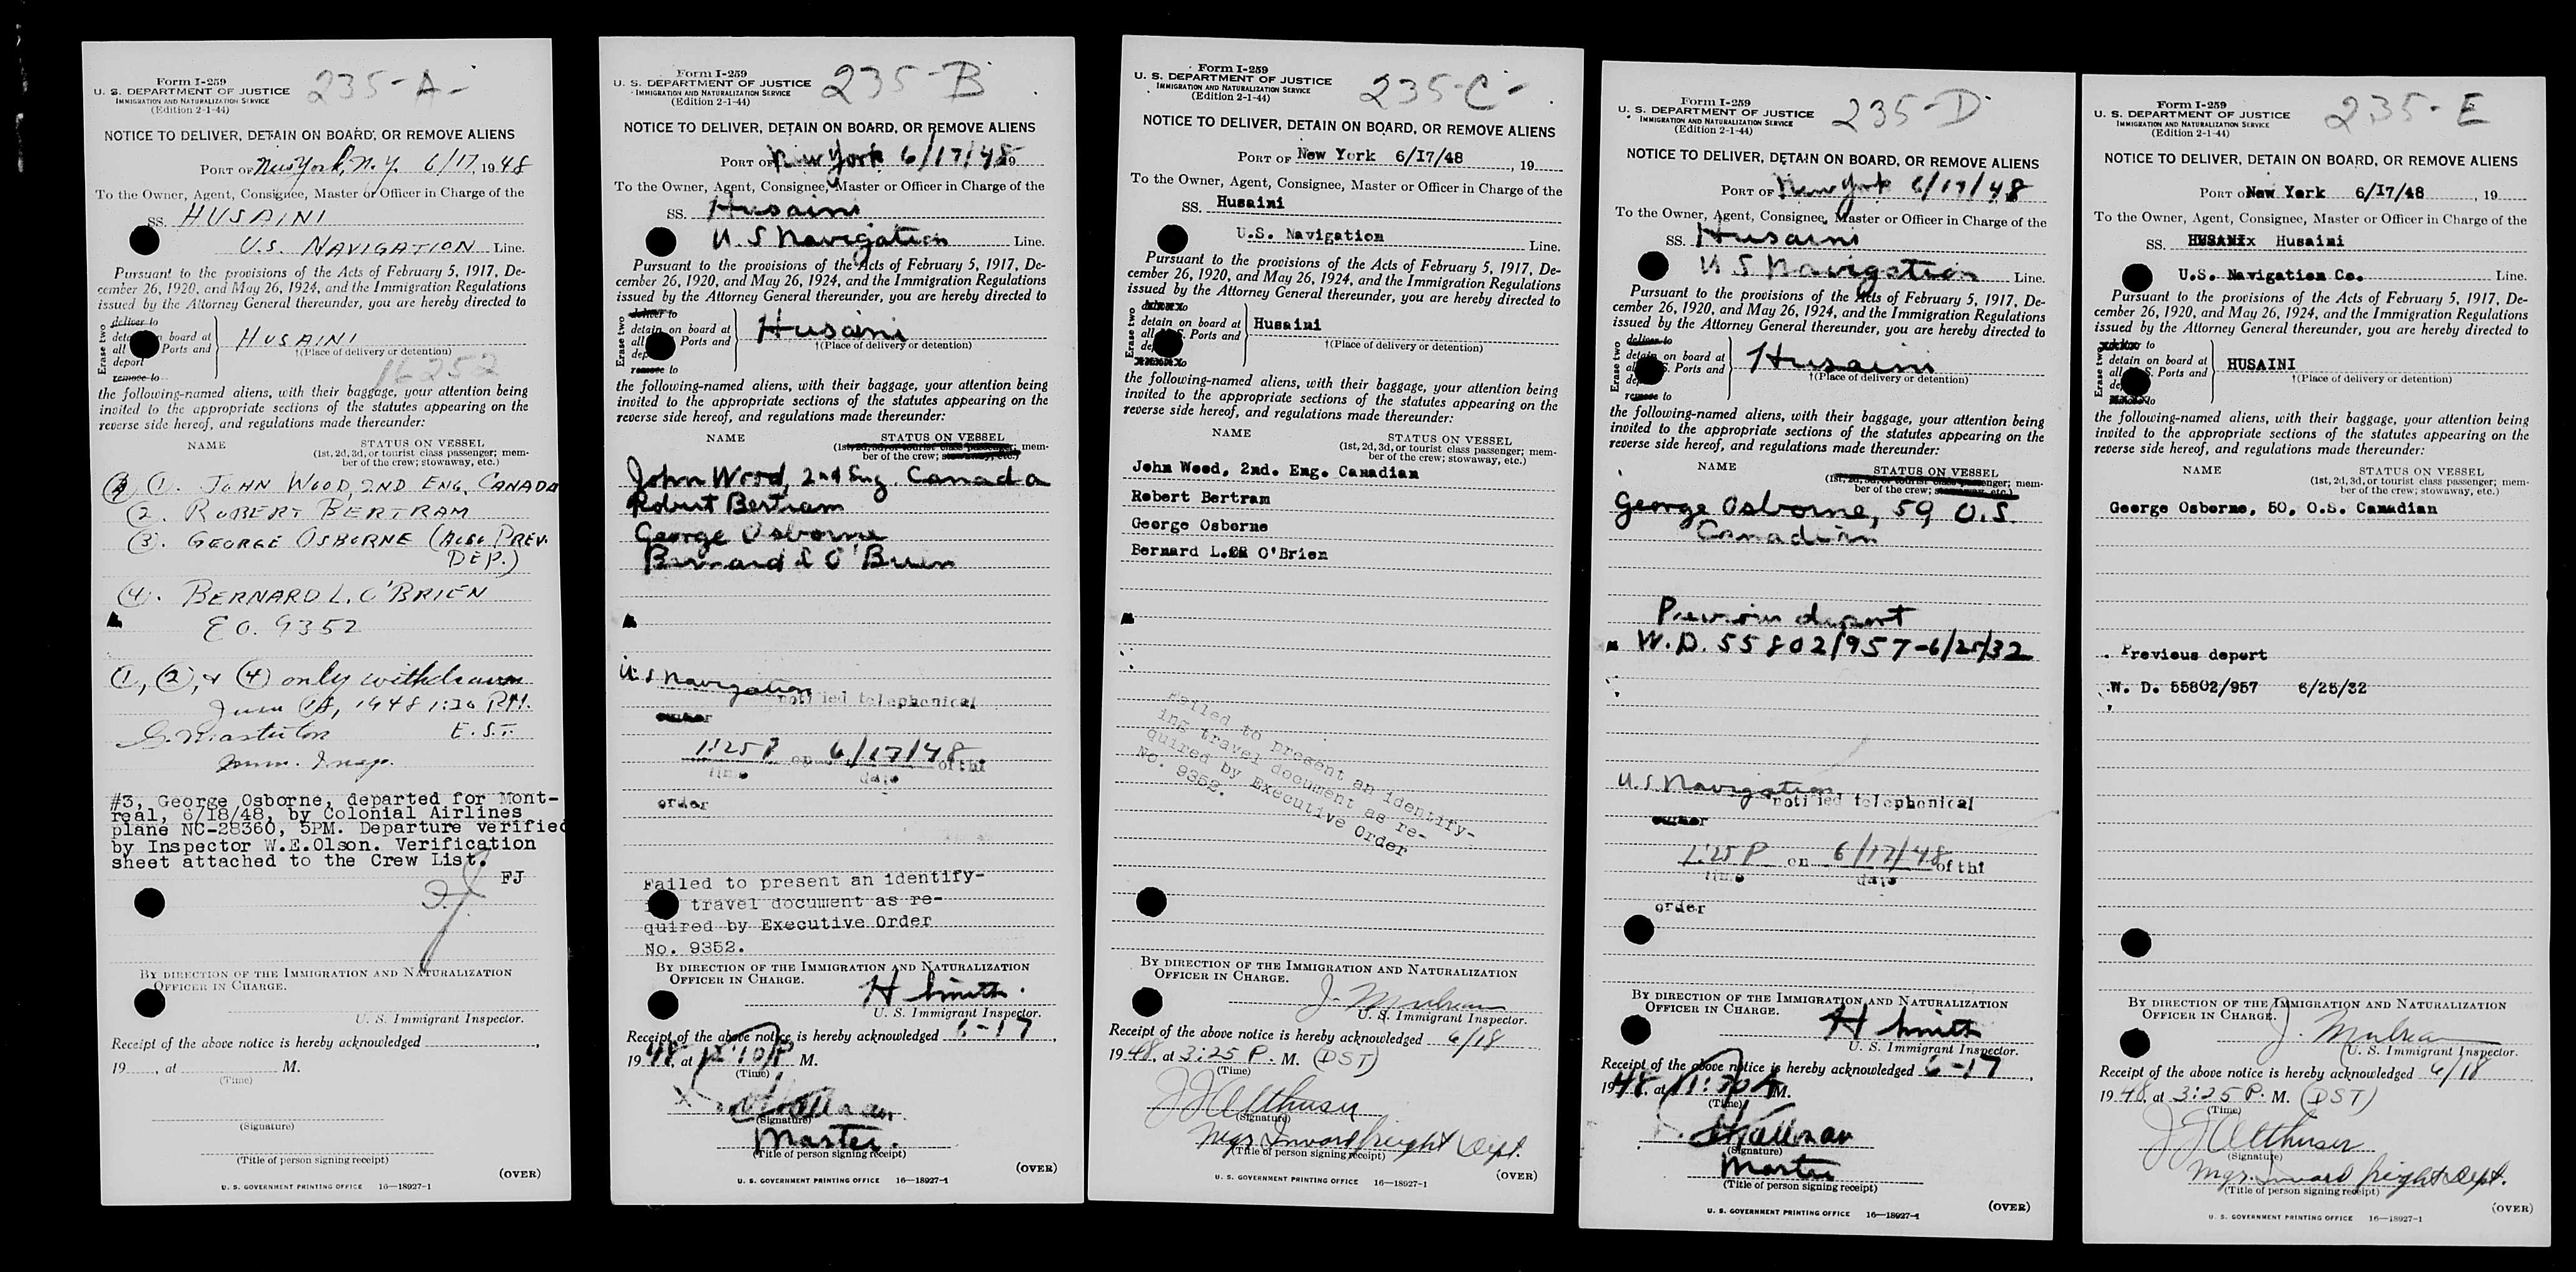 Form I-259
U. S. DEPARTMENT OF JUSTICE
IMMIGRATION AND NATURALIZATION SERVICE
(Edition 2-1-44)
235-A-
NOTICE TO DELIVER, DETAIN ON BOARD, OR REMOVE ALIENS
PORT OF New York, N.Y. 6/17, 1948
To the Owner, Agent, Consignee, Master or Officer in Charge of the
SS. HUSAINI
U.S. NAVIGATION Line.
Pursuant to the provisions of the Acts of February 5, 1917, De-
cember 26, 1920, and May 26, 1924, and the Immigration Regulations
issued by the Attorney General thereunder, you are hereby directed to
Erase two
deliver to
deta n board at
all Ports and
deport
remove to
HUSAINI
†(Place of delivery or detention)
16252
the following-named aliens, with their baggage, your attention being
invited to the appropriate sections of the statutes appearing on the
reverse side hereof, and regulations made thereunder:
NAME STATUS ON VESSEL
(1st, 2d, 3d, or tourist class passenger; mem-
ber of the crew; stowaway, etc.)
1. JOHN WOOD, 2ND ENG, CANADA
2. ROBERT BERTRAM
3. GEORGE OSBORNE (ALSO PREV.
DEP.)
4. BERNARD L. O'BRIEN
EO. 9352
1, 2, & 4 only withdrawn
June 18, 1948 1:20 P.M.
E.S.T.
Imm. Insp.
#3, George Osborne, departed for Mont-
real, 6/18/48, by Colonial Airlines
plane NC-28360, 5PM. Departure verified
by Inspector W.E.Olson. Verification
sheet attached to the Crew List.
FJ
BY DIRECTION OF THE IMMIGRATION AND NATURALIZATION
OFFICER IN CHARGE.
U. S. Immigrant Inspector.
Receipt of the above notice is hereby acknowledged
19 , at M.
(Time)
(Signature)
(Title of person signing receipt)
(OVER)
U. S. GOVERNMENT PRINTING OFFICE 16—18927-1
Form I-259
U. S. DEPARTMENT OF JUSTICE
IMMIGRATION AND NATURALIZATION SERVICE
(Edition 2-1-44)
235-B
NOTICE TO DELIVER, DETAIN ON BOARD, OR REMOVE ALIENS
PORT OF New York 6/17/48 19
To the Owner, Agent, Consignee, Master or Officer in Charge of the
SS. Husaini
U.S Navigation Line.
Pursuant to the provisions of the Acts of February 5, 1917, De-
cember 26, 1920, and May 26, 1924, and the Immigration Regulations
issued by the Attorney General thereunder, you are hereby directed to
Erase two
deliver to
detain on board at
Ports and
dep
remove to
Husaini
†(Place of delivery or detention)
the following-named aliens, with their baggage, your attention being
invited to the appropriate sections of the statutes appearing on the
reverse side hereof, and regulations made thereunder:
NAME STATUS ON VESSEL
(1st, 2d, 3d, or tourist class passenger; mem-
ber of the crew; stowaway, etc.)
John Wood, 2nd Eng Canada
Robert Bertram
George Osborne
Bernard L O'Brien
U.S Navigation
notified telephonical
1:25 P on 6/17/48 of thi
time date
order
Failed to present an identify-
travel document as re-
quired by Executive Order
No. 9352.
BY DIRECTION OF THE IMMIGRATION AND NATURALIZATION
OFFICER IN CHARGE.
H Smith.
U. S. Immigrant Inspector.
Receipt of the above notice is hereby acknowledged 6-17,
1948, at M.
(Time)
X
(Signature)
Master.
(Title of person signing receipt)
(OVER)
U. S. GOVERNMENT PRINTING OFFICE 16—18927-1
Form I-259
U. S. DEPARTMENT OF JUSTICE
IMMIGRATION AND NATURALIZATION SERVICE
(Edition 2-1-44)
235-C-
NOTICE TO DELIVER, DETAIN ON BOARD, OR REMOVE ALIENS
PORT OF New York 6/17/48 , 19
To the Owner, Agent, Consignee, Master or Officer in Charge of the
SS. Husaini
U.S. Navigation Line.
Pursuant to the provisions of the Acts of February 5, 1917, De-
cember 26, 1920, and May 26, 1924, and the Immigration Regulations
issued by the Attorney General thereunder, you are hereby directed to
Erase two
detain on board at
all S. Ports and
de
Husaini
†(Place of delivery or detention)
the following-named aliens, with their baggage, your attention being
invited to the appropriate sections of the statutes appearing on the
reverse side hereof, and regulations made thereunder:
NAME STATUS ON VESSEL
(1st, 2d, 3d, or tourist class passenger; mem-
ber of the crew; stowaway, etc.)
John Wood, 2nd. Eng. Canadian
Robert Bertram
George Osborne
Bernard L. O'Brien
Failed to present an identify-
ing travel document as re-
quired by Executive Order
No. 9352.
BY DIRECTION OF THE IMMIGRATION AND NATURALIZATION
OFFICER IN CHARGE.
U. S. Immigrant Inspector.
Receipt of the above notice is hereby acknowledged 6/18
1948, at 3:25 P. M. (DST)
(Time)
(Signature)
Mgr. Inward freight Dept.
(Title of person signing receipt)
(OVER)
U. S. GOVERNMENT PRINTING OFFICE 16—18927-1
Form I-259
U. S. DEPARTMENT OF JUSTICE
IMMIGRATION AND NATURALIZATION SERVICE
(Edition 2-1-44)
235-D
NOTICE TO DELIVER, DETAIN ON BOARD, OR REMOVE ALIENS
PORT OF New York 6/17/48
To the Owner, Agent, Consignee, Master or Officer in Charge of the
SS. Husaini
U S Navigation Line.
Pursuant to the provisions of the Acts of February 5, 1917, De-
cember 26, 1920, and May 26, 1924, and the Immigration Regulations
issued by the Attorney General thereunder, you are hereby directed to
Erase two
deliver to
detain on board at
al S. Ports and
de
remove to
Husaini
†(Place of delivery or detention)
the following-named aliens, with their baggage, your attention being
invited to the appropriate sections of the statutes appearing on the
reverse side hereof, and regulations made thereunder:
NAME STATUS ON VESSEL
(1st, 2d, 3d, or tourist class passenger; mem-
ber of the crew; stowaway, etc.)
George Osborne, 59 O.S.
Canadian
Previous deport
W.D. 55802/957-6/25/32
U.S. Navigation
notified telephonical
1:25 P on 6/17/48 of thi
time date
order
BY DIRECTION OF THE IMMIGRATION AND NATURALIZATION
OFFICER IN CHARGE.
H Smith
U. S. Immigrant Inspector.
Receipt of the above notice is hereby acknowledged 6-17,
1948, at M.
(Time)
(Signature)
Master
(Title of person signing receipt)
(OVER)
U. S. GOVERNMENT PRINTING OFFICE 16—18927-1
Form I-259
U. S. DEPARTMENT OF JUSTICE
IMMIGRATION AND NATURALIZATION SERVICE
(Edition 2-1-44)
235-E
NOTICE TO DELIVER, DETAIN ON BOARD, OR REMOVE ALIENS
PORT OF New York 6/17/48 , 19
To the Owner, Agent, Consignee, Master or Officer in Charge of the
SS. HUSANIx Husaini
U.S. Navigation Co. Line.
Pursuant to the provisions of the Acts of February 5, 1917, De-
cember 26, 1920, and May 26, 1924, and the Immigration Regulations
issued by the Attorney General thereunder, you are hereby directed to
Erase two
to
detain on board at
all S. Ports and
de
to
HUSAINI
†(Place of delivery or detention)
the following-named aliens, with their baggage, your attention being
invited to the appropriate sections of the statutes appearing on the
reverse side hereof, and regulations made thereunder:
NAME STATUS ON VESSEL
(1st, 2d, 3d, or tourist class passenger; mem-
ber of the crew; stowaway, etc.)
George Osborne, 50, O.S. Canadian
Previous deport
W. D. 55802/957 6/25/32
BY DIRECTION OF THE IMMIGRATION AND NATURALIZATION
OFFICER IN CHARGE.
U. S. Immigrant Inspector.
Receipt of the above notice is hereby acknowledged 6/18
1948, at 3:25 P. M. (DST)
(Time)
(Signature)
Mgr. Inward freight Dept.
(Title of person signing receipt)
(OVER)
U. S. GOVERNMENT PRINTING OFFICE 16—18927-1